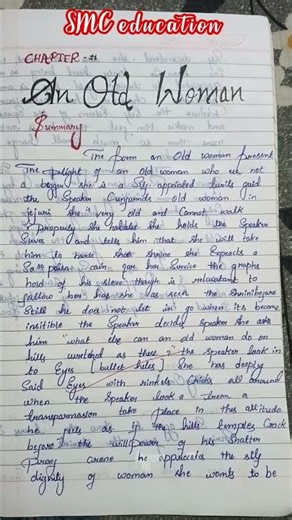 SMC education
CHAPTER-
An Old Woman
Summary
The poem an Old woman present
The plight of an Old woman who is not
a beggar she is a Self appointed guid
the Speaker Old woman in
jejuri she is very old and Cannot walk
properly she she holds the Speaker
Sleeve and tells him that she will take
him to horse shoe shrine she Expects a
50 paisa coin for her Service the
hold of his sleeve though is to
fallow her has she as seen the
Still he does not let in go when its become
the Speaker decide Speaker she asks
him "what else can an old woman do on
hills as these" the speaker look in
to Eyes [bullet holes] She has deeply
Said Eyes with Cricks all around
when the Speaker look a
take place in this attitude
he feels as if the hills temples Crack
before the will power of his Shatter
Proof crone he appreciates the
dignity of woman she wants to be